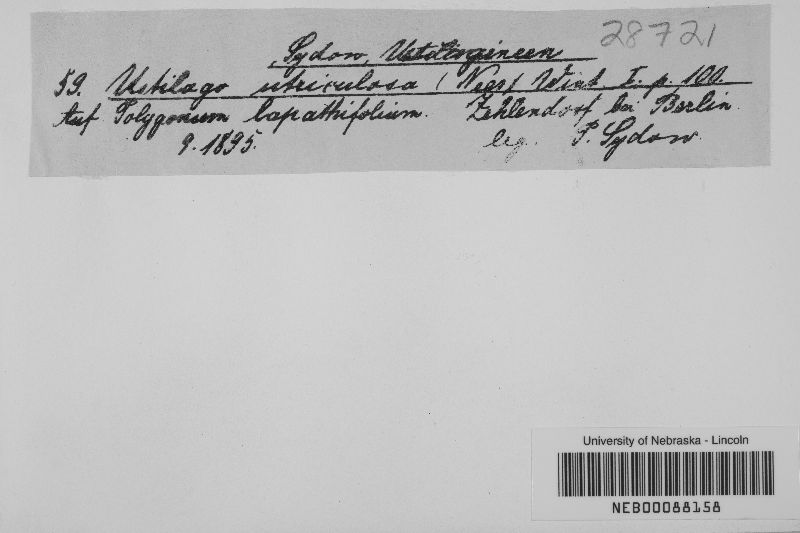 Sydow, Ustilagineen 28721
59. Ustilago utriculosa (Nees) Wint. I. p. 100
Auf Polygonum lapathifolium. Zehlendorf bei Berlin.
9. 1895. leg. P. Sydow.
University of Nebraska - Lincoln
NEB00088158